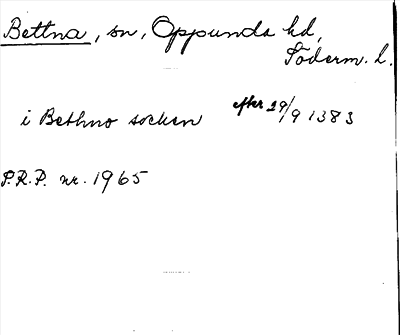 Bettna, sn, Oppunda hd,
Söderm. l.
i Bethno socken efter 29/9 1383
P.R.P. nr. 1965